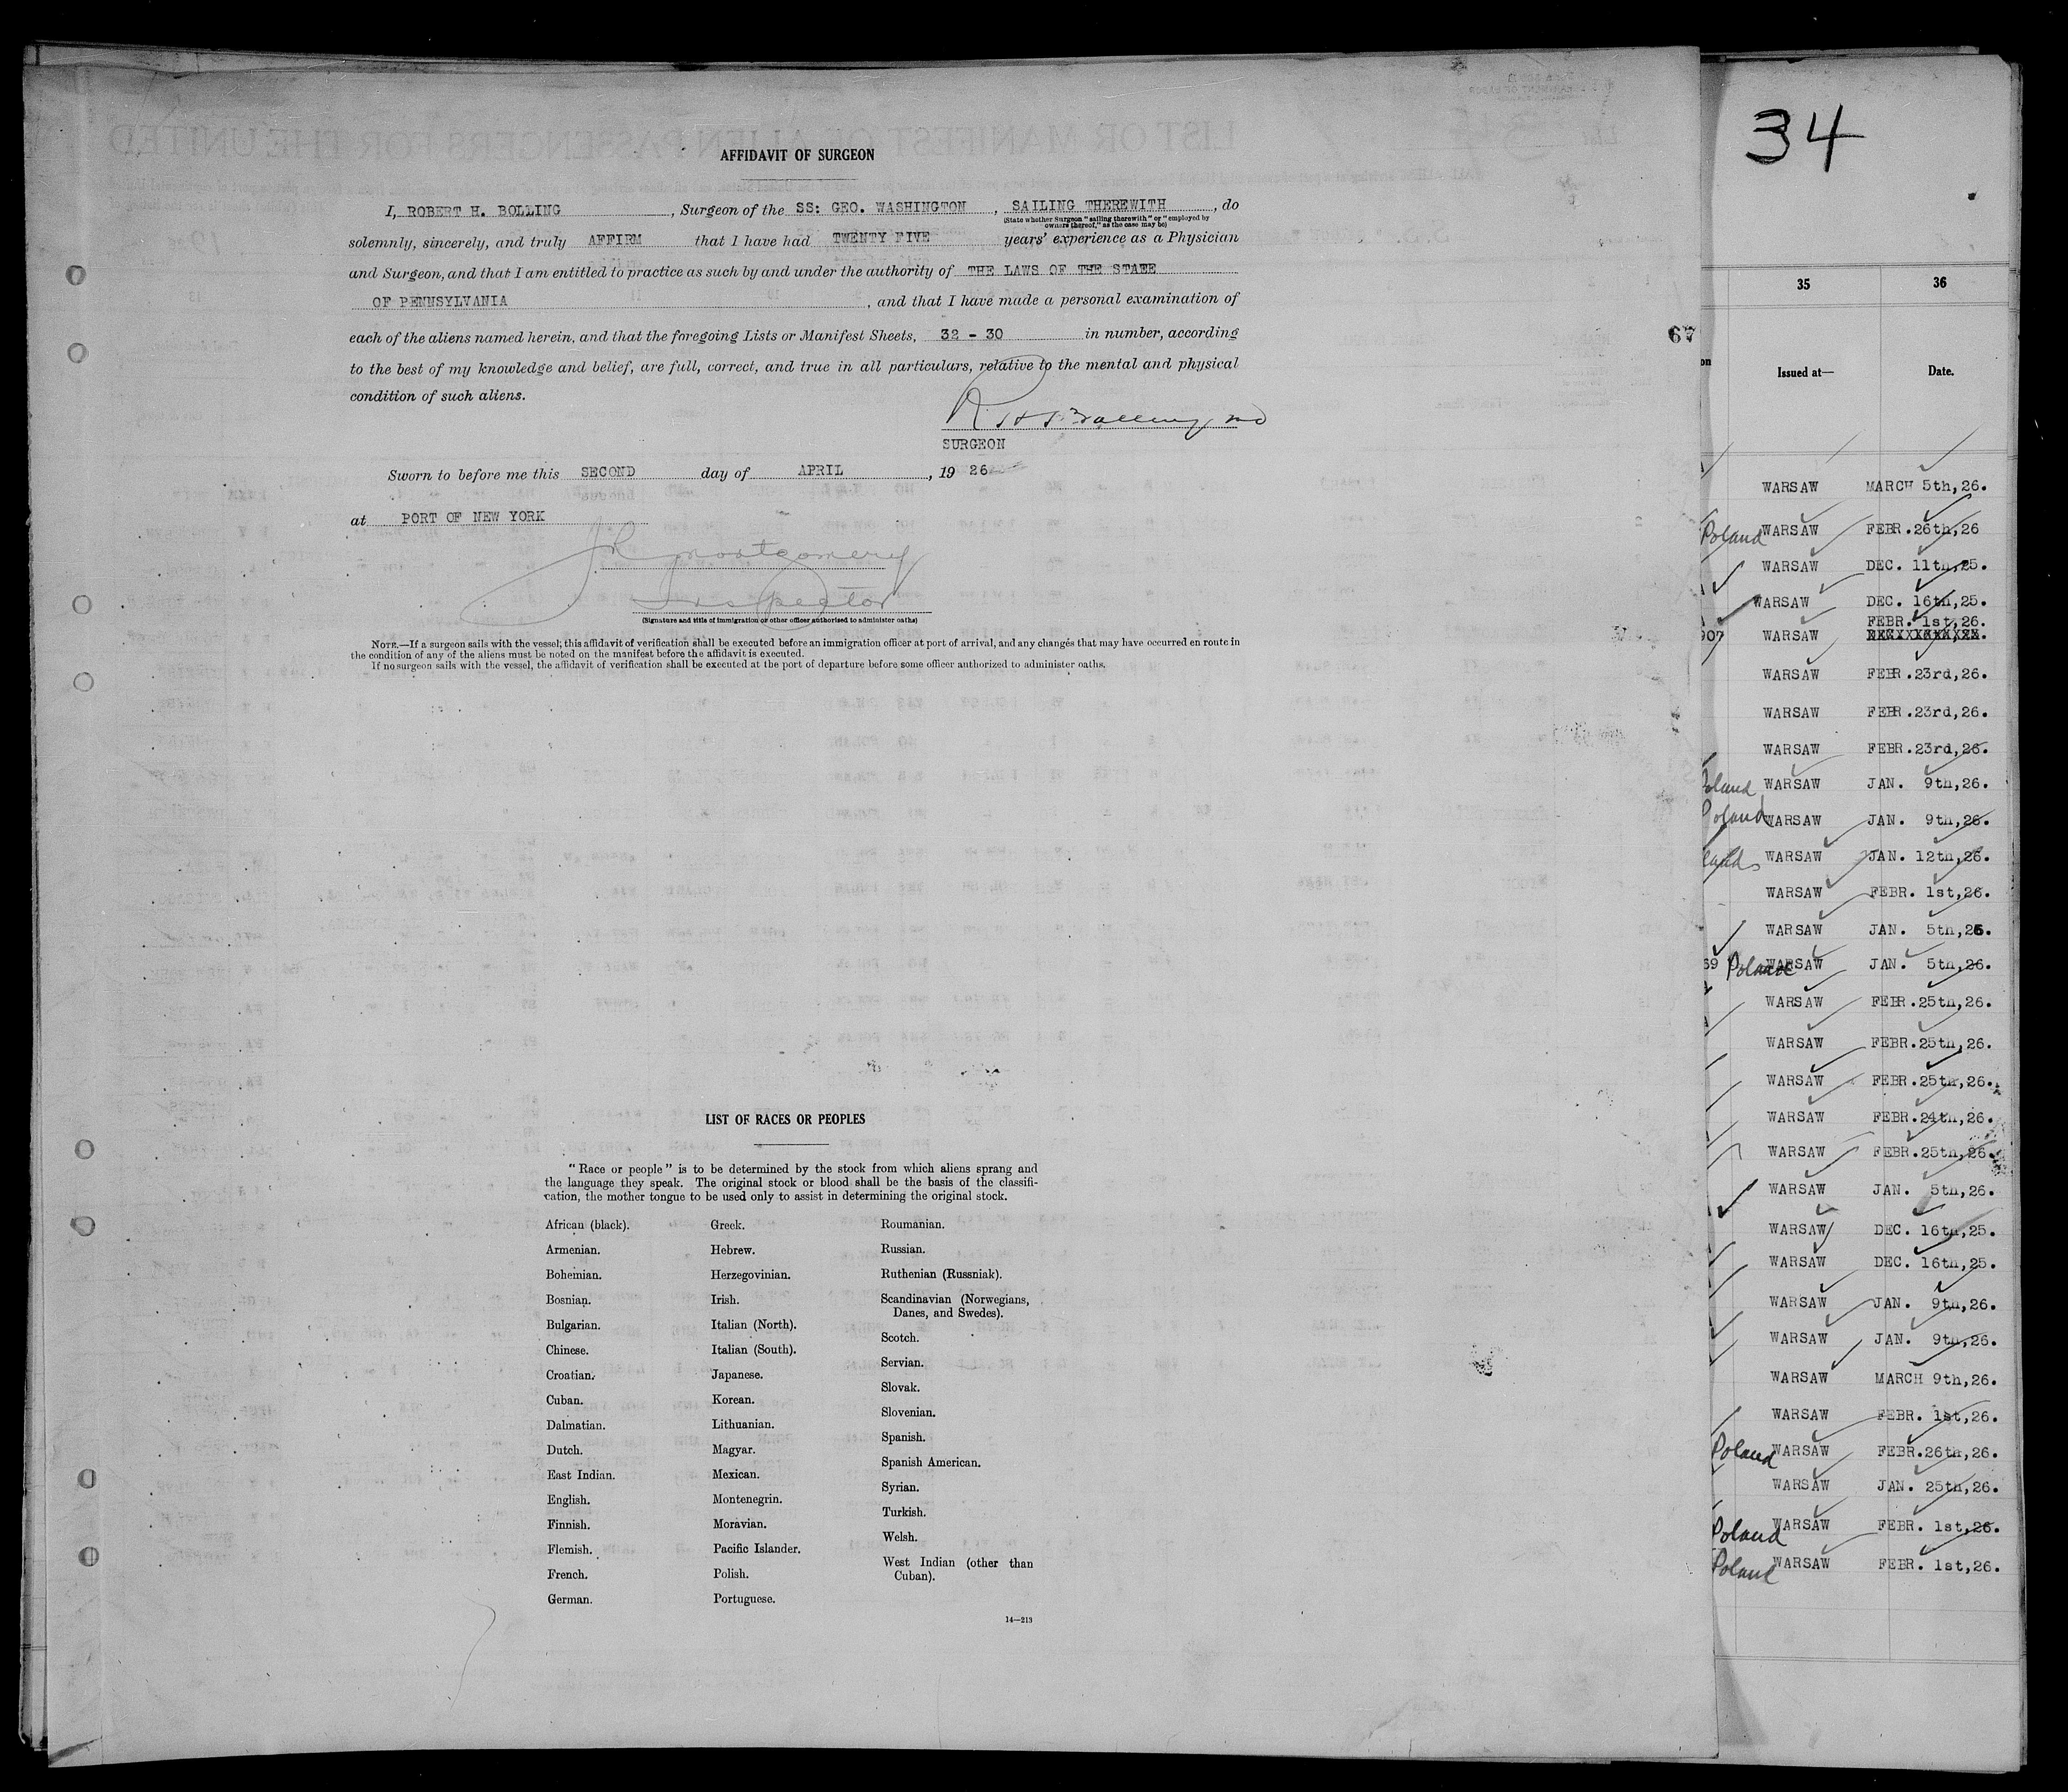 AFFIDAVIT OF SURGEON
I, ROBERT H. BOLLING, Surgeon of the SS: GEO. WASHINGTON, SAILING THEREWITH, do
(State whether Surgeon "sailing therewith" or "employed by
owners thereof," as the case may be)
solemnly, sincerely, and truly AFFIRM that I have had TWENTY FIVE years' experience as a Physician
and Surgeon, and that I am entitled to practice as such by and under the authority of THE LAWS OF THE STAEE
OF PENNSYLVANIA, and that I have made a personal examination of
each of the aliens named herein, and that the foregoing Lists or Manifest Sheets, 32 - 30 in number, according
to the best of my knowledge and belief, are full, correct, and true in all particulars, relative to the mental and physical
condition of such aliens.
R H Bolling md
SURGEON
Sworn to before me this SECOND day of APRIL, 19 26
at PORT OF NEW YORK
Montgomery
Inspector
(Signature and title of immigration or other officer authorised to administer oaths)
NOTE.—If a surgeon sails with the vessel, this affidavit of verification shall be executed before an immigration officer at port of arrival, and any changes that may have occurred en route in
the condition of any of the aliens must be noted on the manifest before the affidavit is executed.
If no surgeon sails with the vessel, the affidavit of verification shall be executed at the port of departure before some officer authorized to administer oaths.
LIST OF RACES OR PEOPLES
"Race or people" is to be determined by the stock from which aliens sprang and
the language they speak. The original stock or blood shall be the basis of the classifi-
cation, the mother tongue to be used only to assist in determining the original stock.
African (black).
Armenian.
Bohemian.
Bosnian.
Bulgarian.
Chinese.
Croatian.
Cuban.
Dalmatian.
Dutch.
East Indian.
English.
Finnish.
Flemish.
French.
German.
Greek.
Hebrew.
Herzegovinian.
Irish.
Italian (North).
Italian (South).
Japanese.
Korean.
Lithuanian.
Magyar.
Mexican.
Montenegrin.
Moravian.
Pacific Islander.
Polish.
Portuguese.
Roumanian.
Russian.
Ruthenian (Russniak).
Scandinavian (Norwegians,
Danes, and Swedes).
Scotch.
Servian.
Slovak.
Slovenian.
Spanish.
Spanish American.
Syrian.
Turkish.
Welsh.
West Indian (other than
Cuban).
14—213
34
67
35 36
Issued at— Date.
WARSAW MARCH 5th,26.
Poland WARSAW FEBR.26th,26
WARSAW DEC. 11th,25.
WARSAW DEC. 16th,25.
FEBR. 1st,26.
907 WARSAW
WARSAW FEBR.23rd,26.
WARSAW FEBR.23rd,26.
WARSAW FEBR.23rd,26.
Poland WARSAW JAN. 9th,26.
Poland WARSAW JAN. 9th,26.
WARSAW JAN. 12th,26.
WARSAW FEBR. 1st,26.
WARSAW JAN. 5th,26.
69 Poland WARSAW JAN. 5th,26.
WARSAW FEBR.25th,26.
WARSAW FEBR.25th,26.
WARSAW FEBR.25th,26.
WARSAW FEBR.24th,26.
WARSAW FEBR.25th,26.
WARSAW JAN. 5th,26.
WARSAW DEC. 16th,25.
WARSAW DEC. 16th,25.
WARSAW JAN. 9th,26.
WARSAW JAN. 9th,26.
WARSAW MARCH 9th,26.
WARSAW FEBR. 1st,26.
Poland WARSAW FEBR.26th,26.
WARSAW JAN. 25th,26.
Poland WARSAW FEBR. 1st,26.
Poland WARSAW FEBR. 1st,26.